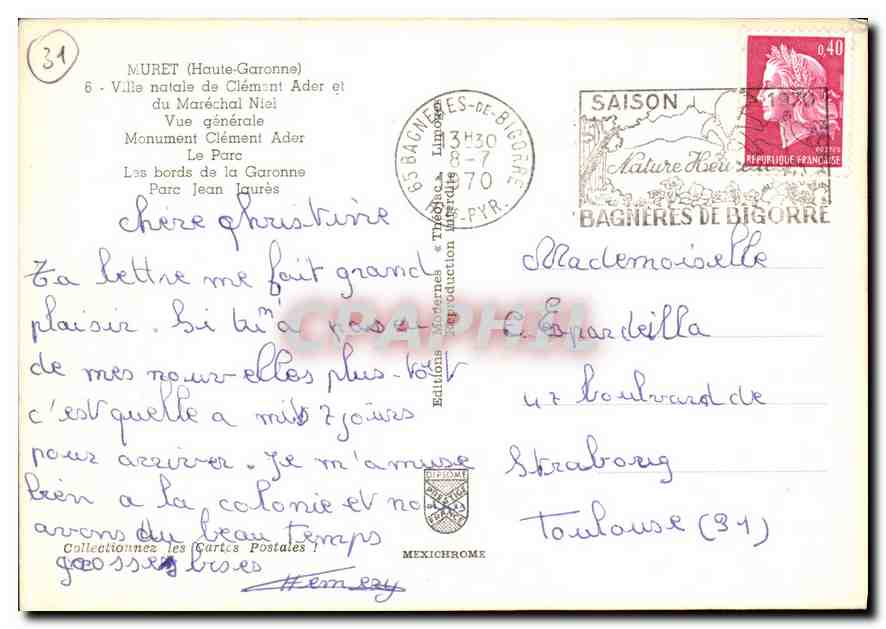 31
MURET (Haute-Garonne)
6 - Ville natale de Clément Ader et
du Maréchal Niel
Vue générale
Monument Clément Ader
Le Parc
Les bords de la Garonne
Parc Jean Jaurès
chère christine
Ta lettre me fait grand
plaisir. Si tu m'a pas eu
de mes nouvelles plus-tôt
c'est quelle a mis 7 jours
pour arriver. Je m'amuse
bien a la colonie et no
avons du beau temps
grosses bises
Hemery
Collectionnez les Cartes Postales !
Editions Modernes « Théojac » Limoges
Reproduction interdite
DIPLOME
PRESTIGE
FRANCE
MEXICHROME
65 BAGNERES-DE-BIGORRE
13H30
8-7
1970
HTES-PYR.
SAISON
Nature Heureuse
BAGNERES DE BIGORRE
0,40
POSTES
REPUBLIQUE FRANÇAISE
Mademoiselle
C. Espardeilla
47 boulvard de
Strabourg
Toulouse (31)
CPAPHIL